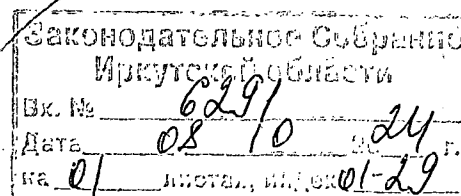 Законодательное Собрание
Иркутской области
Вх. № 6291
Дата 08 10 2024 г.
на 01 листах, индекс 01-29